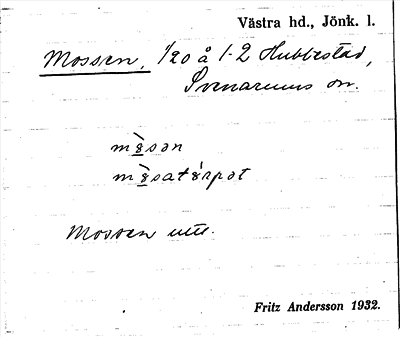 Västra hd., Jönk. l.
Mossen, 1/20 å 1-2 Hubbestad,
Svenarums sn.
Mossen utt.
Fritz Andersson 1932.